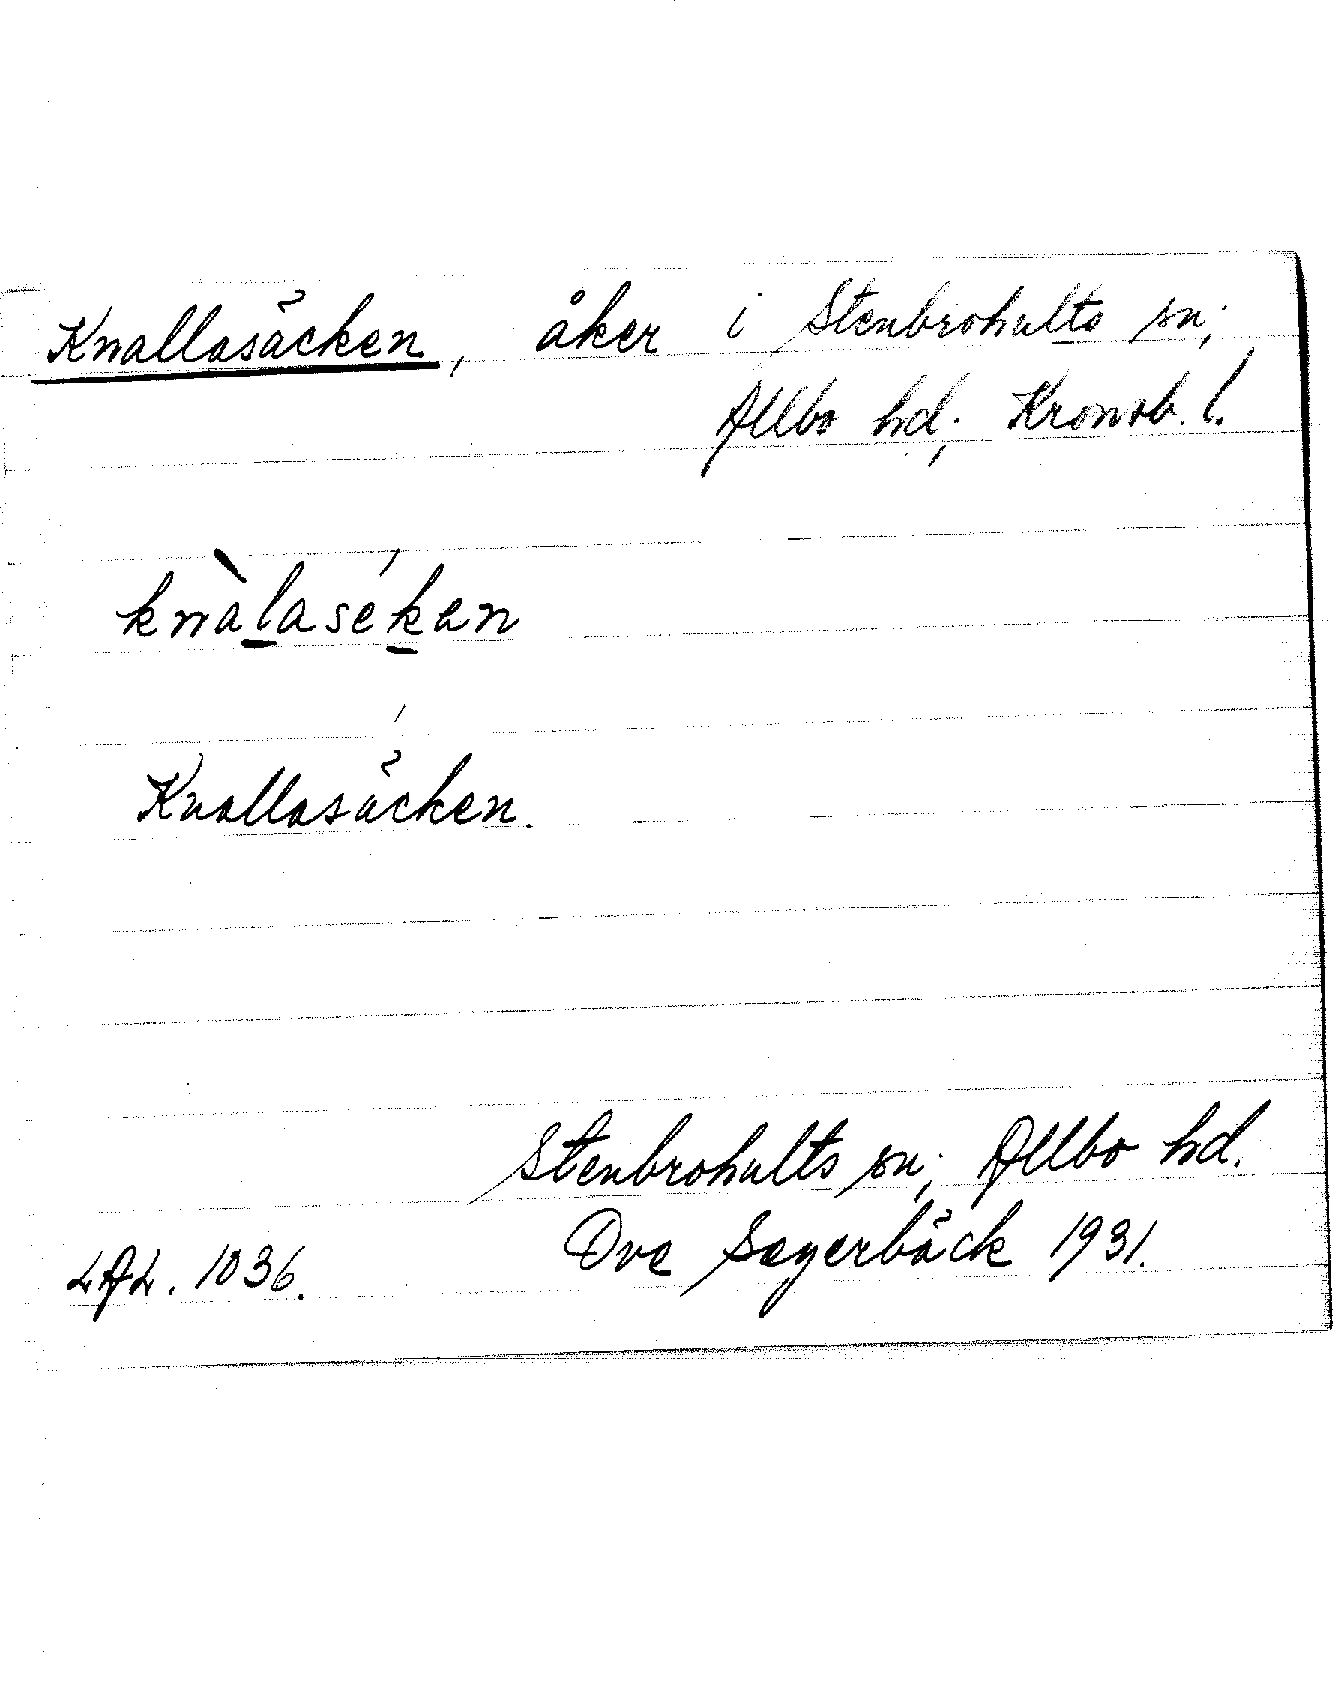 Knallasäcken, åker i Stenbrohults sn;
Allbo hd; Kronob. l.
knàlasékan
Knallasäcken.
Stenbrohults sn; Allbo hd.
LAL. 1036. Ove Sagerbäck 1931.